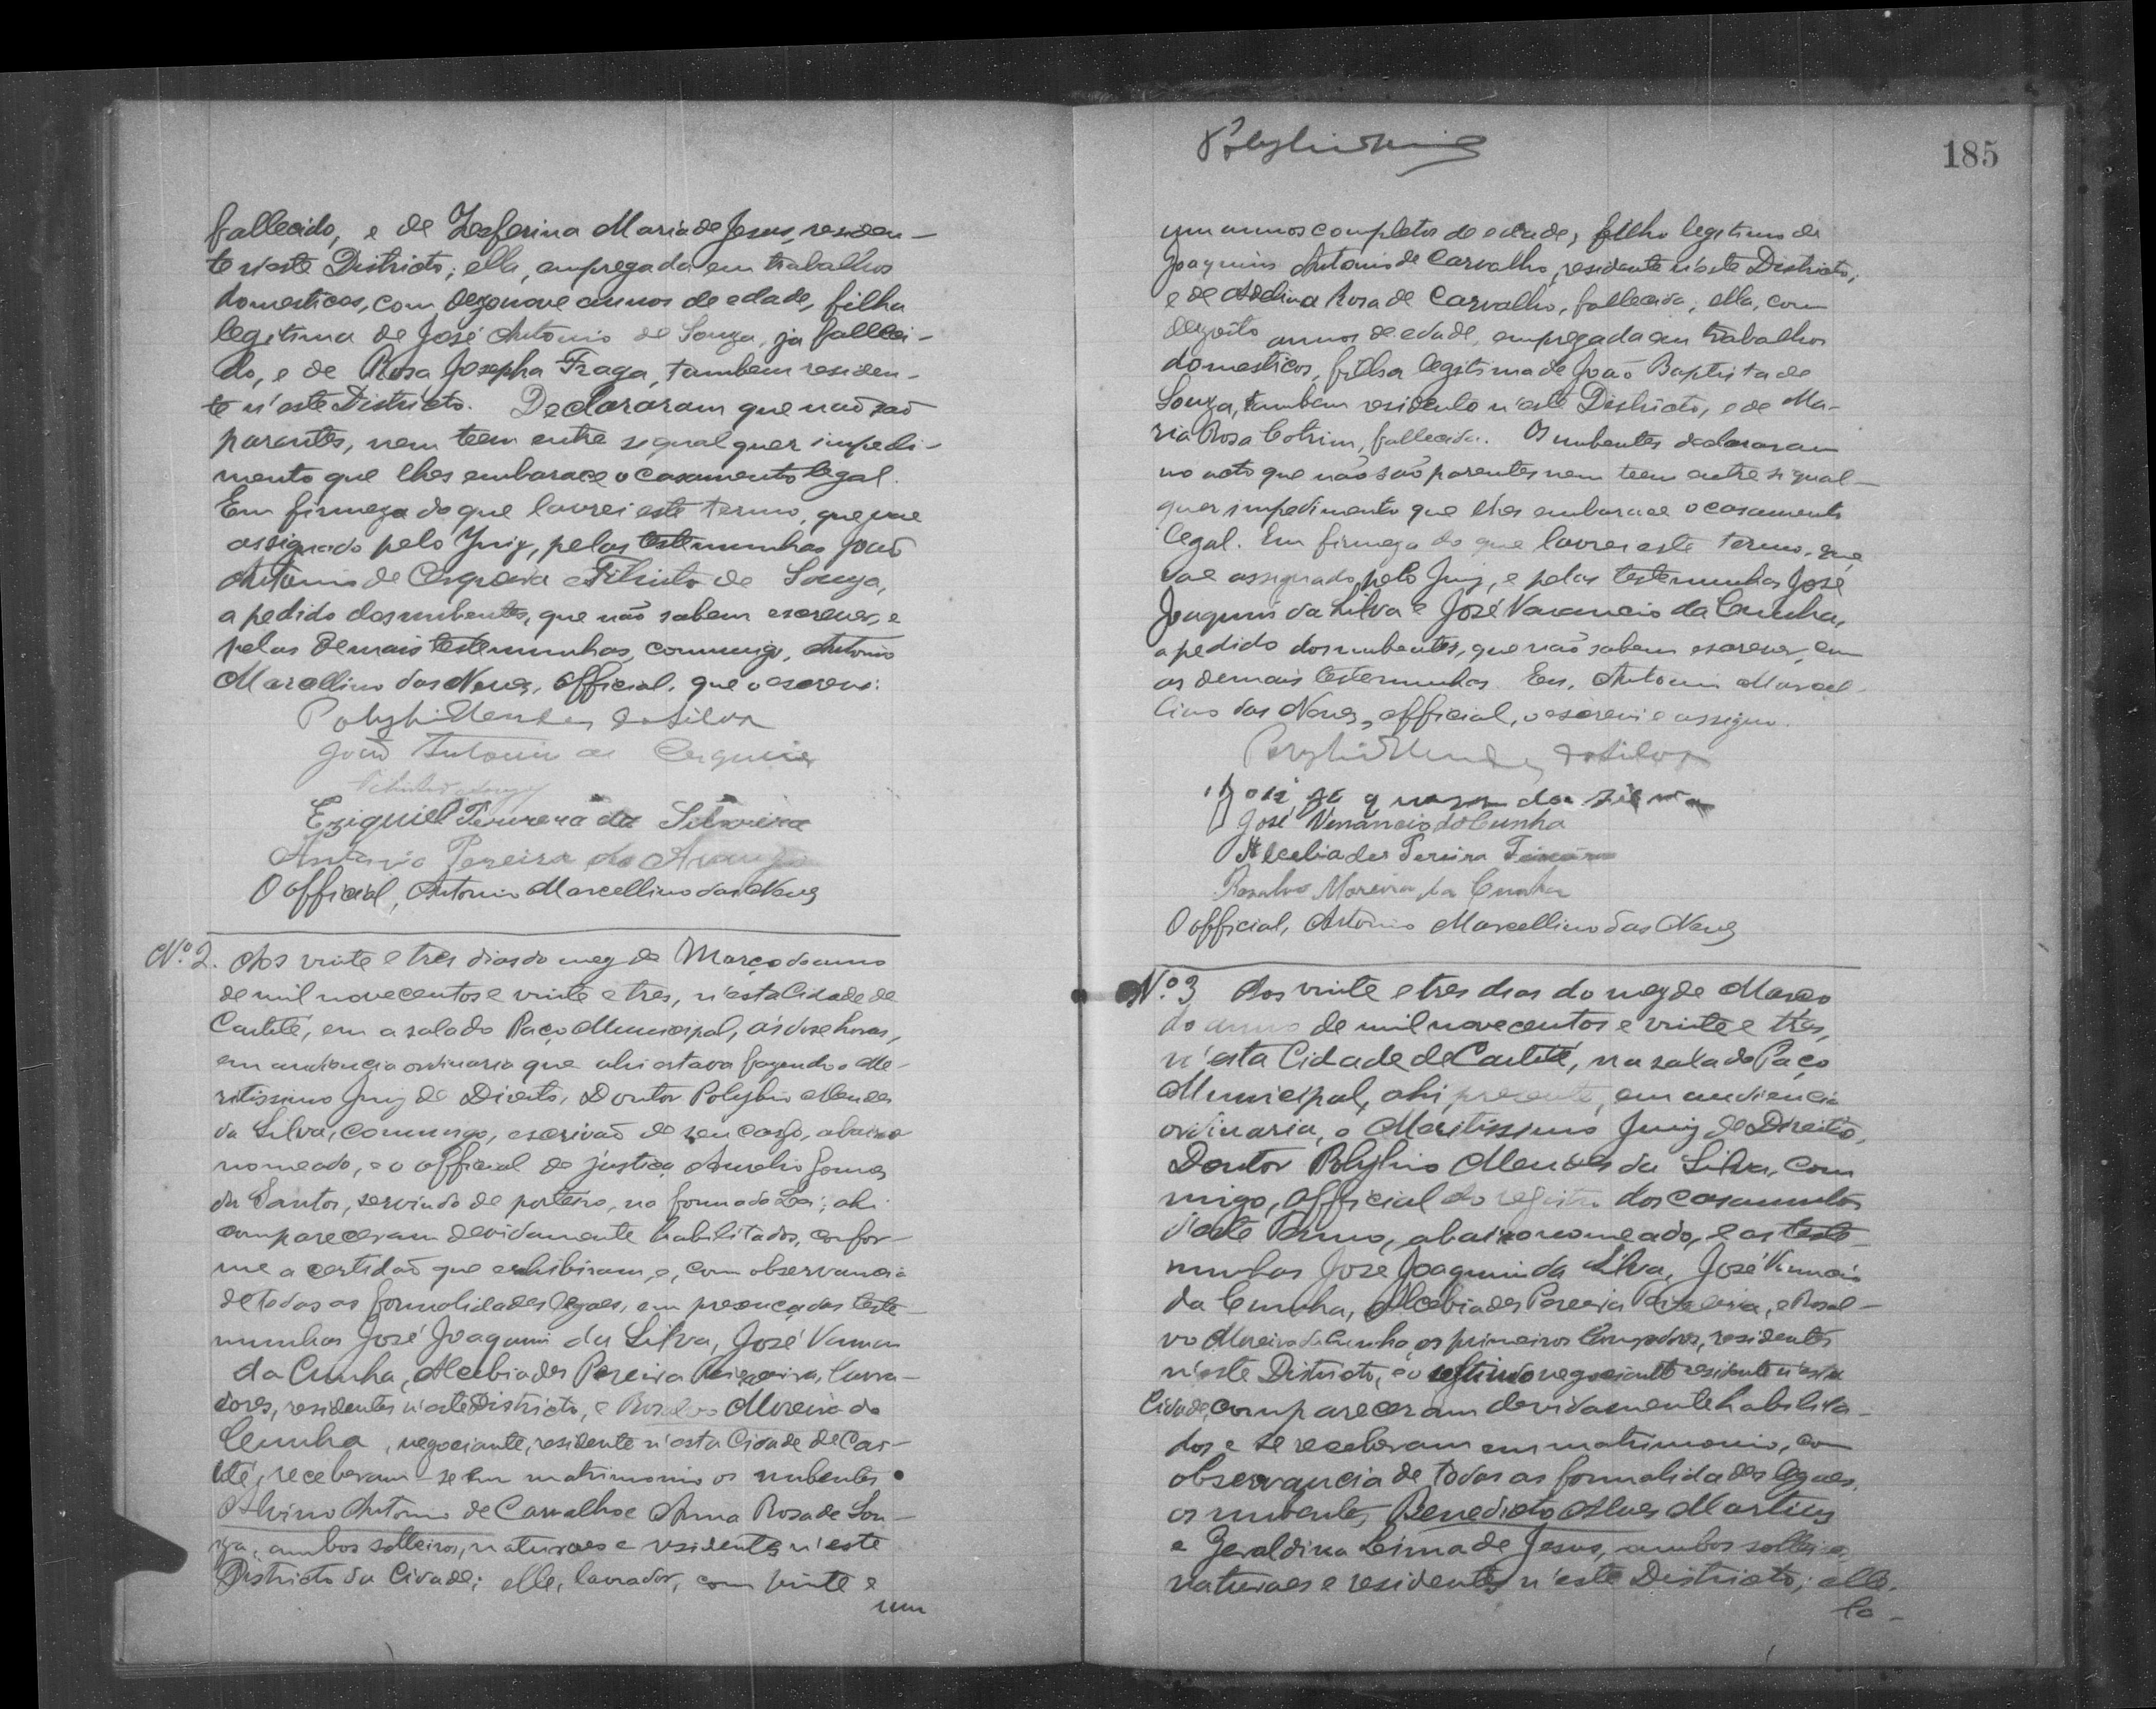 fallecido, e de Zeferina Maria de Jesus, residen-
te n'este Districto; ella, empregada em trabalhos
domesticos, com dezenove annos de edade, filha
legitima de José Antonio de Souza, ja falleci-
do, e de Rosa Josepha Fraga, tambem residen-
te n'este Districto. Declararam que não são
parentes, nem teem entre si qualquer impedi-
mento que lhes embarace o casamento legal.
Em firmeza do que lavrei este termo, que vae
assignado pelo Juiz, pelas testemunhas João
Antonio de Cerqueira e de Souza,
a pedido dos nubentes, que não sabem escrever, e
pelas demais testemunhas, commigo, Antonio
Marcellino das Neves, official, que o escrevi.
Polybio Mendes da Silva
João Antonio de Cerqueira
Eziquiel Ferreira da Silveira
Antonio Pereira de Araujo
O official, Antonio Marcellino das Neves
Nº 2. Aos vinte e tres dias do mez de Março do anno
de mil novecentos e vinte e tres, n'esta Cidade de
Caeteté, em a sala do Paço Municipal, ás dose horas,
em audiencia ordinaria que ahi estava fazendo o Me-
ritissimo Juiz de Direito, Doutor Polybio Mendes
da Silva, commigo, escrivão de seu cargo, abaixo
nomeado, e o official de justiça Aurelio Gomes
dos Santos, servindo de porteiro, na forma da Lei; ahi
compareceram devidamente habilitados, confor-
me a certidão que exhibiram, e, com observancia
de todas as formalidades legaes, em presença das teste-
munhas José Joaquim da Silva, José Venancio
da Cunha, Alcebiades Pereira Teixeira, lavra-
dores, residentes n'este Districto, e Rosalvo Moreira da
Cunha, negociante, residente n'esta Cidade de Cae-
teté, receberam-se em matrimonio os nubentes
Alvino Antonio de Carvalho e Anna Rosa de Sou-
za, ambos solteiros, naturaes e residentes n'este
Districto da Cidade; elle, lavrador, com vinte e
um
185
um annos completos de edade, filho legitimo de
Joaquim Antonio de Carvalho, residente n'este Districto,
e de Adelina Rosa de Carvalho, fallecida; ella, com
dezoito annos de edade, empregada em trabalhos
domesticos, filha legitima de João Baptista de
Souza, tambem residente n'este Districto, e de Ma-
ria Rosa Cotrim, fallecida. Os nubentes declararam
no acto que não são parentes nem teem entre si qual-
quer impedimento que lhes embarace o casamento
legal. Em firmeza do que lavrei este termo, que
vae assignado pelo Juiz, e pelas testemunhas José
Joaquim da Silva e José Venancio da Cunha,
a pedido dos nubentes, que não sabem escrever, com
as demais testemunhas. Eu, Antonio Marcel-
lino das Neves, official, o escrevi e assigno.
Polybio Mendes da Silva
José Joaquim da Silva
José Venancio da Cunha
Alcebiades Pereira Teixeira
Rosalvo Moreira da Cunha
O official, Antonio Marcellino das Neves
Nº 3 Aos vinte e tres dias do mez de Março
do anno de mil novecentos e vinte e tres,
n'esta Cidade de Caeteté, na sala do Paço
Municipal, ahi presente, em audiencia
ordinaria, o Meritissimo Juiz de Direito,
Doutor Polybio Mendes da Silva, com
migo, official do registro dos casamentos
d'este Termo, abaixo nomeado, e as teste-
munhas José Joaquim da Silva, José Venancio
da Cunha, Alcebiades Pereira Teixeira, e Rosal-
vo Moreira da Cunha, os primeiros lavradores, residentes
n'este Districto, e o ultimo negociante residente n'esta
Cidade, compareceram devidamente habilita-
dos e se receberam em matrimonio, com
observancia de todas as formalidades legaes,
os nubentes Benedicto Alves Martins
e Geraldina Lima de Jesus, ambos solteiros,
naturaes e residentes n'este Districto; elle,
la-